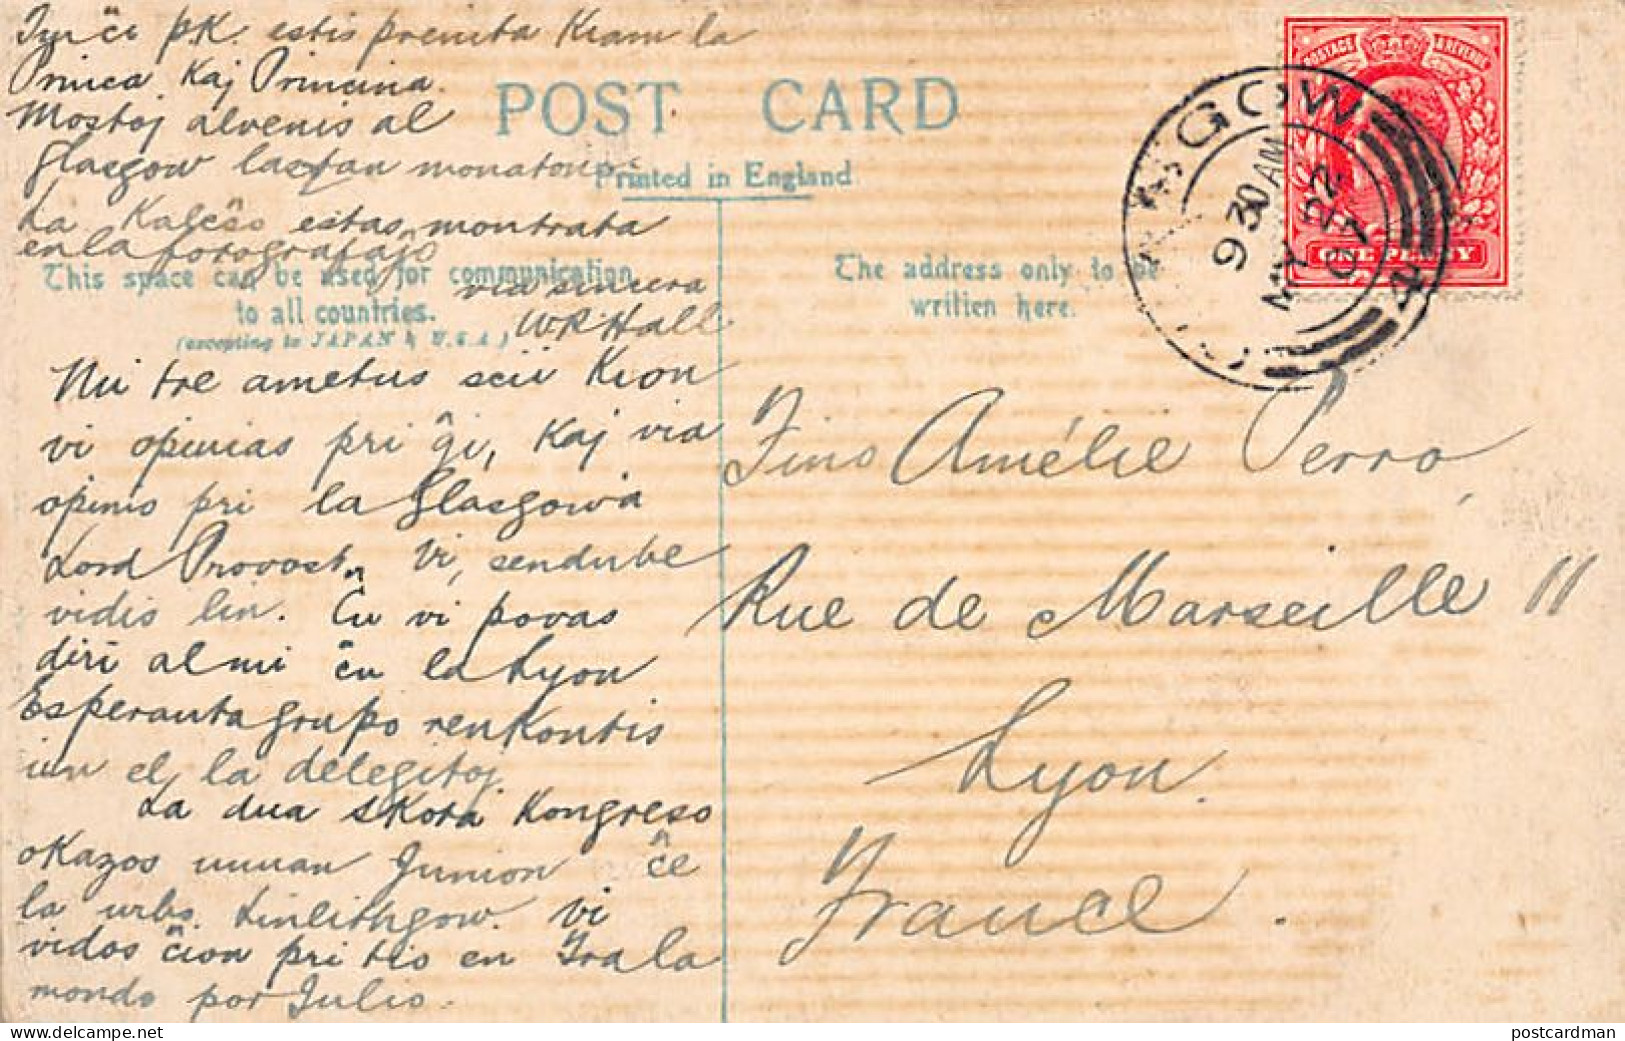 Tiu ĉi P.K. estis prenita Kiam la
Princa Kaj Princina
Moŝtoj alvenis al
Glasgow lastan monaton.
La Kaleŝo estas montrata
en la fotografaĵo
via sincera
WR Hall
Ni tre ametus scii Kion
vi opinias pri ĝi, Kaj via
opinio pri la Glasgowa
Lord Provost, Vi, sendube
vidis lin. Ĉu vi povas
diri al mi ĉu la Lyon
Esperanta grupo renkontis
iun el la delegitoj.
La dua skota Kongreso
okazos unuan Junion ĉe
la urbo Linlithgow. Vi
vidos ĉion pri tio en Tra la
mondo por Julio.
POST CARD
Printed in England
This space can be used for communication
to all countries.
(excepting to JAPAN & U.S.A.)
The address only to be
written here.
POSTAGE & REVENUE
ONE PENNY
GLASGOW
9 30 AM
MY 2
07
Fino Amélie Perro,
Rue de Marseille 11
Lyon.
France.
postcardman